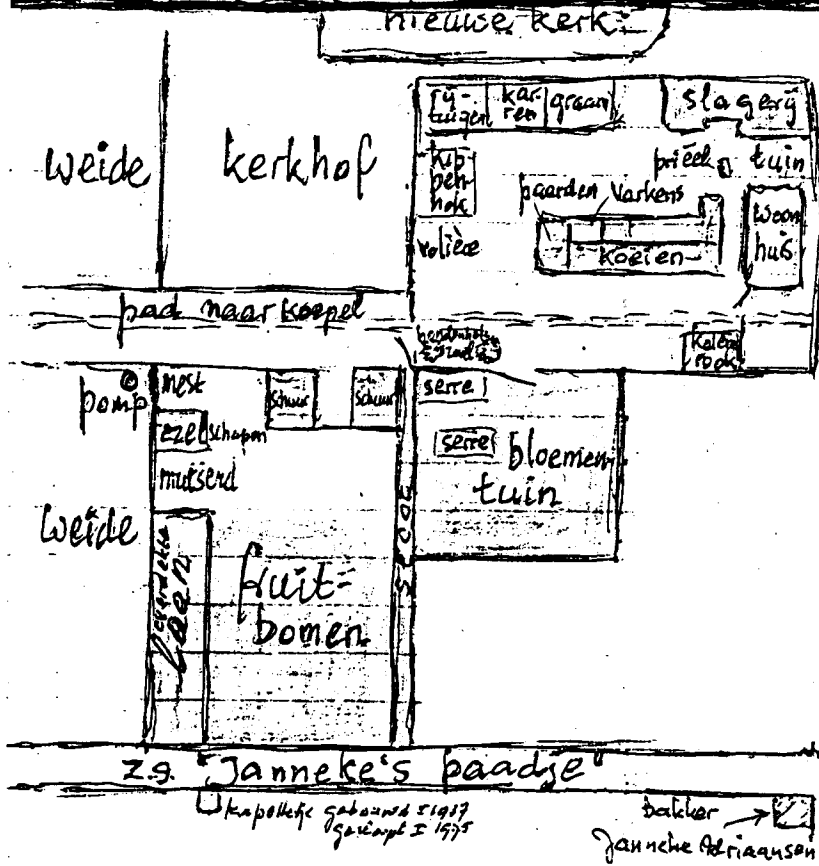 nieuwe kerk
rij-
tuigen
kar-
ren
graan
slagerij
weide
kerkhof
kip
pen
hok
prieel
tuin
paarden
varkens
woon
huis
volière
koeien
pad naar koepel
pomp
mest
schuur
schuur
serre
ezel
schapen
serre
bloemen
tuin
mutserd
weide
SLOOT
fruit=
bomen
laan
z.g. "Janneke's paadje"
kapelletje gebouwd ± 1937
± 1975
bakker
Janneke Adriaansen